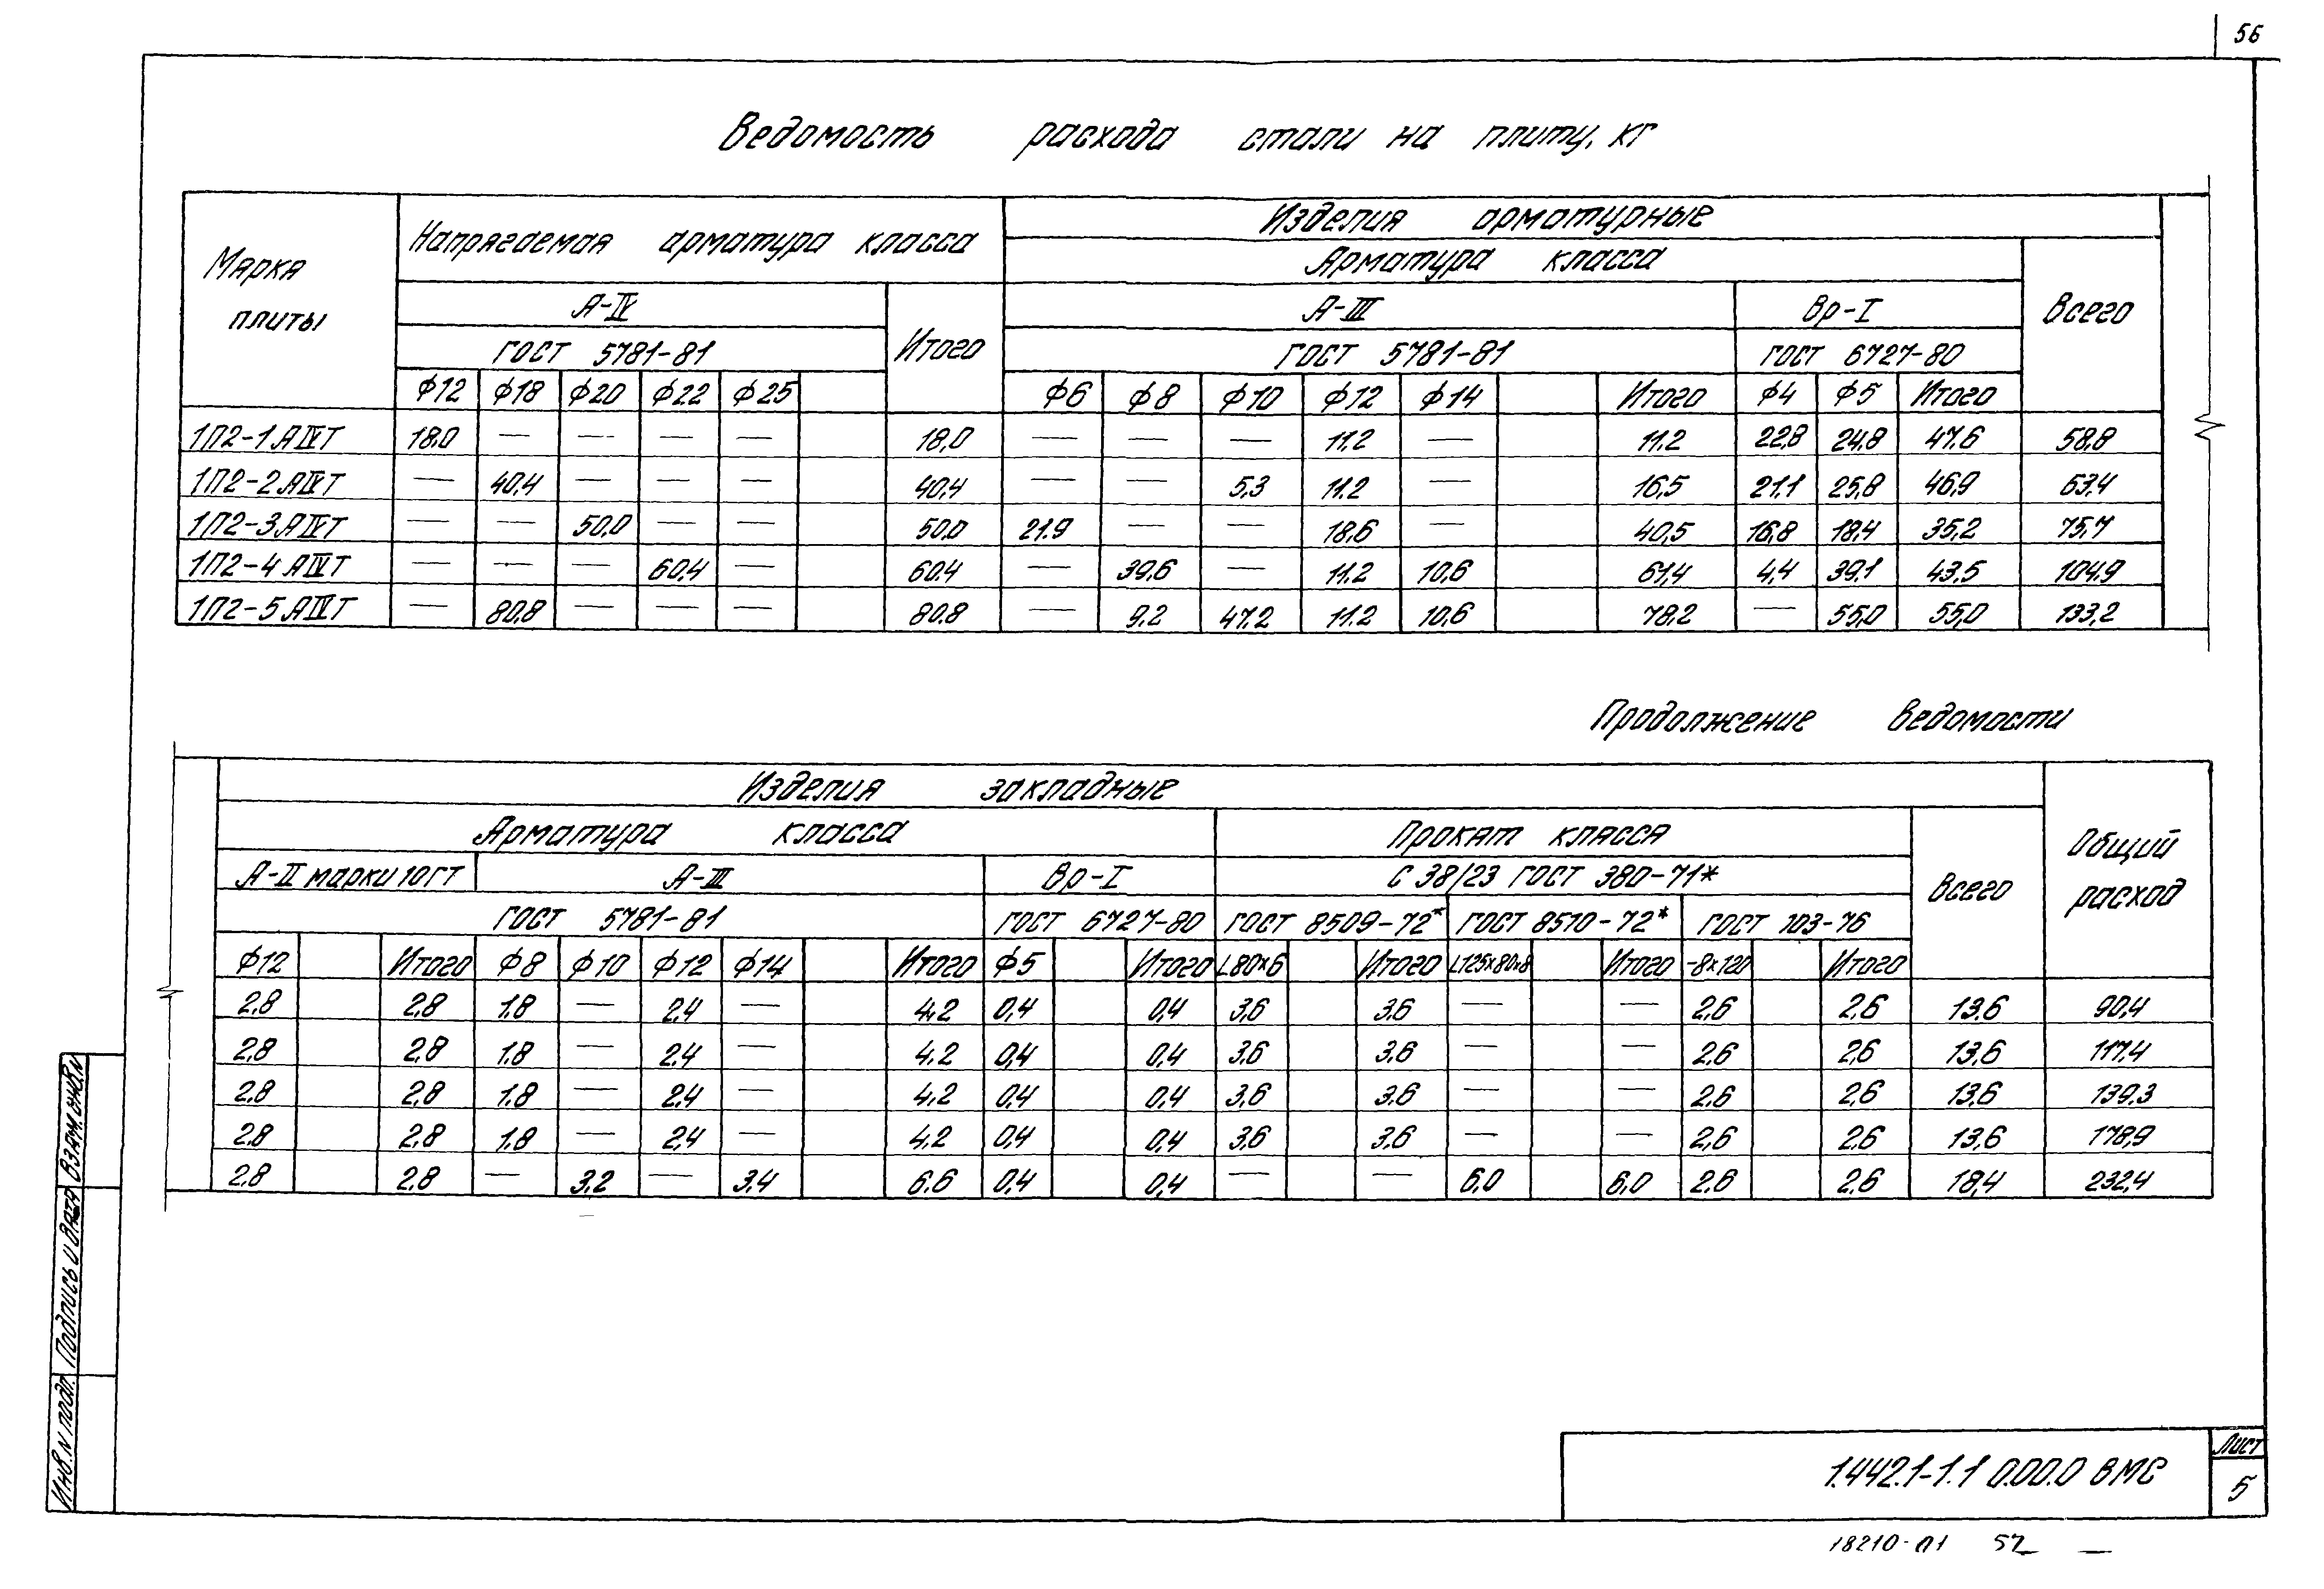 56
Ведомость расхода стали на плиту, кг
Марка плиты
Напрягаемая арматура класса
Изделия арматурные
Арматура класса
А-IV
Итого
А-III
Вр-I
Всего
ГОСТ 5781-81
ГОСТ 5781-81
ГОСТ 6727-80
ф12 ф18 ф20 ф22 ф25 ф6 ф8 ф10 ф12 ф14 Итого ф4 ф5 Итого
1П2-1АIVТ 18,0 — — — — 18,0 — — — 11.2 — 11.2 22,8 24,8 47.6 58,8
1П2-2АIVТ — 40,4 — — — 40,4 — — 5,3 11.2 — 16,5 21.1 25,8 46,9 63,4
1П2-3АIVТ — — 50,0 — — 50,0 21.9 — — 18,6 — 40,5 16,8 18,4 35,2 75,7
1П2-4АIVТ — — — 60,4 — 60.4 — 39,6 — 11.2 10,6 61,4 4,4 39,1 43,5 104,9
1П2-5АIVТ — 80,8 — — — 80.8 — 9,2 47.2 11.2 10,6 78,2 — 55,0 55,0 133,2
Продолжение ведомости
Изделия закладные
Общий расход
Арматура класса
Прокат класса
Всего
А-II марки 10ГТ
А-III
Вр-I
С 38/23 ГОСТ 380-71*
ГОСТ 5781-81
ГОСТ 6727-80
ГОСТ 8509-72*
ГОСТ 8510-72*
ГОСТ 103-76
ф12 Итого ф8 ф10 ф12 ф14 Итого ф5 Итого L80×6 Итого L125×80×8 Итого -8×120 Итого
2,8 2,8 1,8 — 2,4 — 4,2 0,4 0,4 3,6 3.6 — — 2,6 2,6 13,6 90,4
2,8 2,8 1.8 — 2,4 — 4,2 0,4 0,4 3,6 3.6 — — 2,6 2,6 13,6 117,4
2,8 2,8 1.8 — 2,4 — 4,2 0,4 0,4 3,6 3,6 — — 2,6 2,6 13,6 139,3
2,8 2,8 1,8 — 2,4 — 4,2 0,4 0,4 3,6 3,6 — — 2,6 2,6 13,6 178,9
2,8 2,8 — 3,2 — 3,4 6.6 0,4 0,4 — — 6,0 6,0 2,6 2,6 18,4 232,4
Взам. инв. N
Подпись и дата
Инв. N подл.
1.442.1-1.1 0.00.0 ВМС
Лист
5
18210-01 57